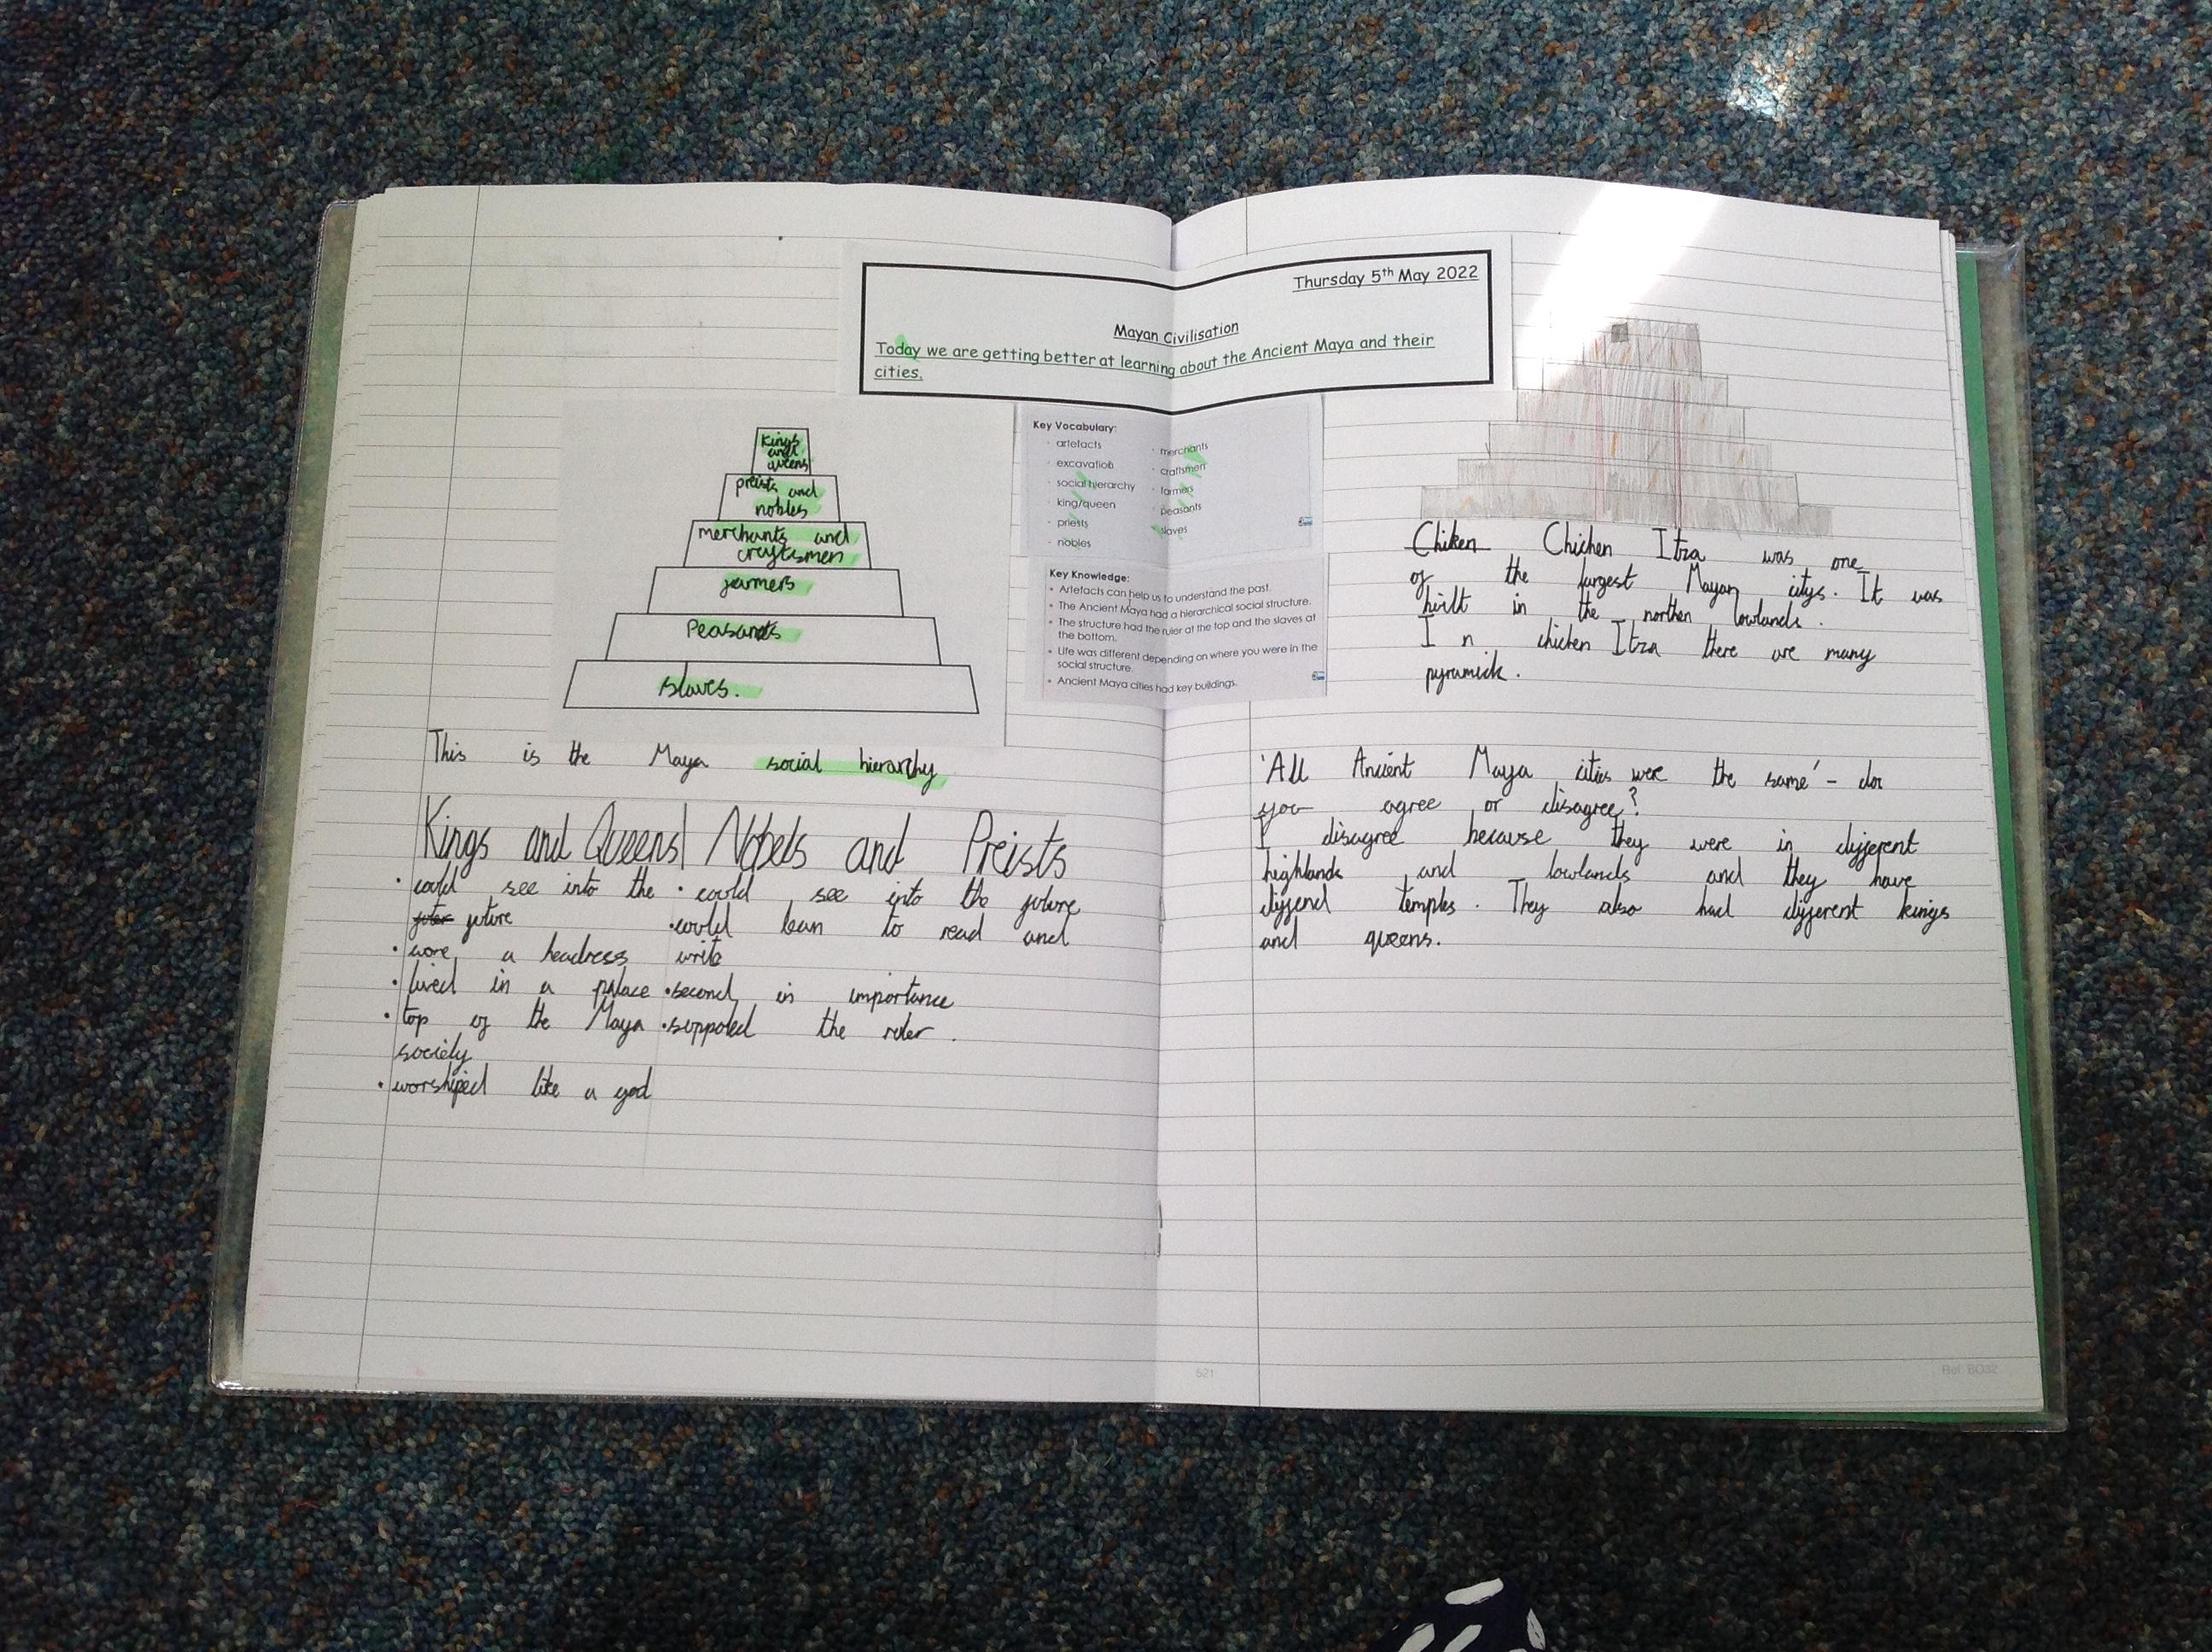 Thursday 5th May 2022
Mayan Civilisation
Today we are getting better at learning about the Ancient Maya and their
cities.
Kings
and
queens
preists and
nobles
merchants and
craftsmen
farmers
Peasants
slaves.
This is the Maya social hierarchy
Key Vocabulary:
artefacts
excavation
social hierarchy
king/queen
priests
nobles
merchants
craftsmen
farmers
peasants
slaves
Key Knowledge:
• Artefacts can help us to understand the past.
• The Ancient Maya had a hierarchical social structure.
• The structure had the ruler at the top and the slaves at
the bottom.
• Life was different depending on where you were in the
social structure.
• Ancient Maya cities had key buildings.
Kings and Queens
• could see into the
future
• wore a headress
• lived in a palace
• top of the Maya
society
• worshiped like a god
Nobels and Preists
• could see into the future
• could lean to read and
write
• second in importance
• suppoted the ruler.
Chiken Chichen Itza was one
of the largest Mayan citys. It was
built in the northen lowlands.
In chichen Itza there are many
pyramids.
'All Ancient Maya cities were the same' - do
you agree or disagree?
I disagree because they were in different
highlands and lowlands and they have
temples. They also had different kings
and queens.
521
Ref: BO32